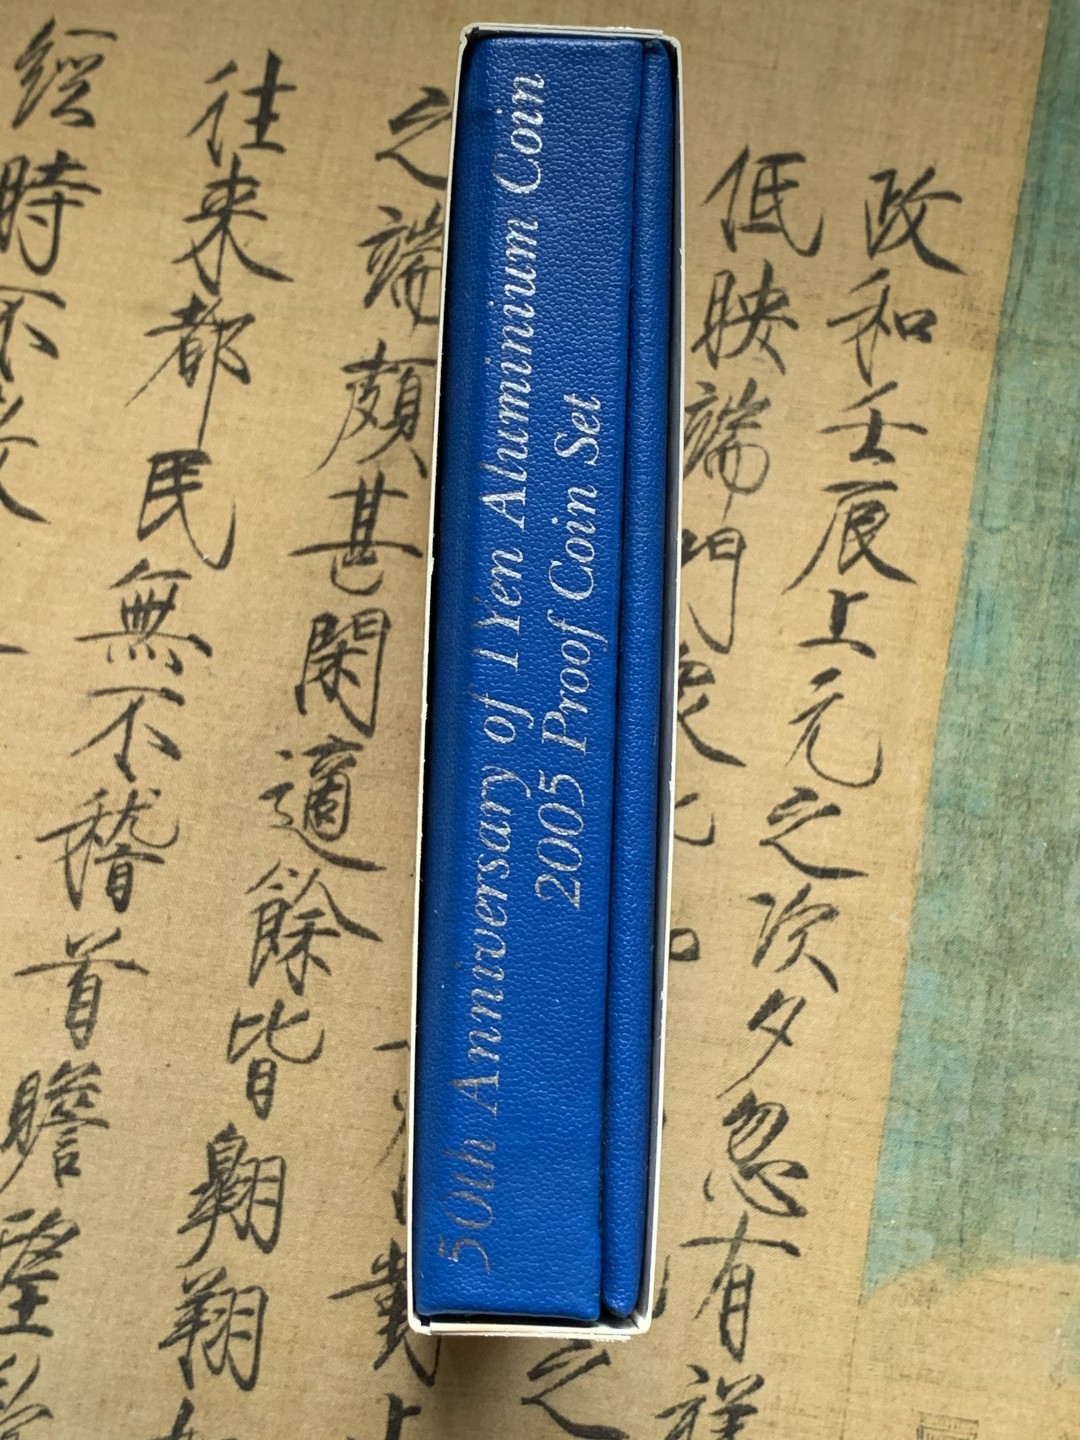 50th Anniversary of 1 Yen Aluminium Coin
2005 Proof Coin Set
政和壬辰上元之次夕忽有祥
低映端門
之
對
之端頗甚閑適餘皆翱翔如
往来都民無不稽首瞻望
經時不散